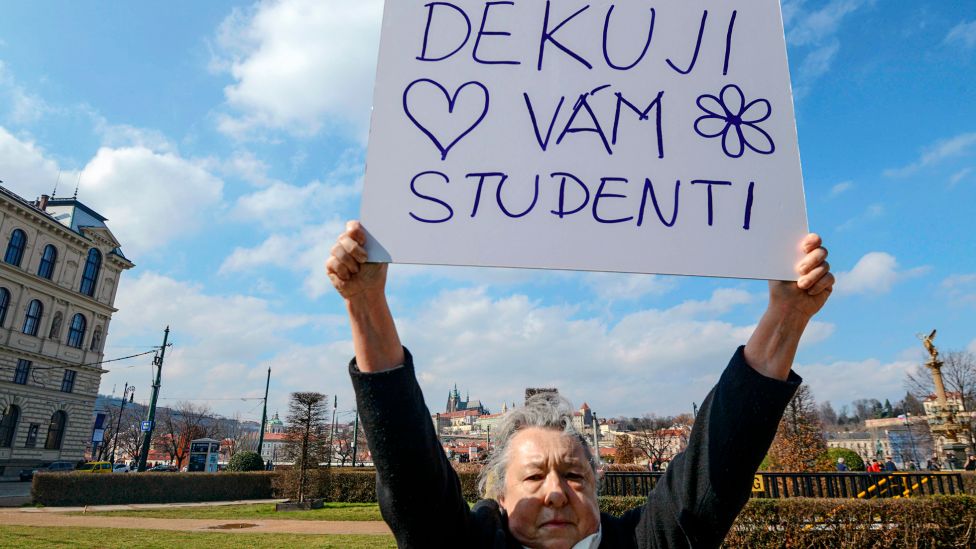 DEKUJI
VÁM
STUDENTI